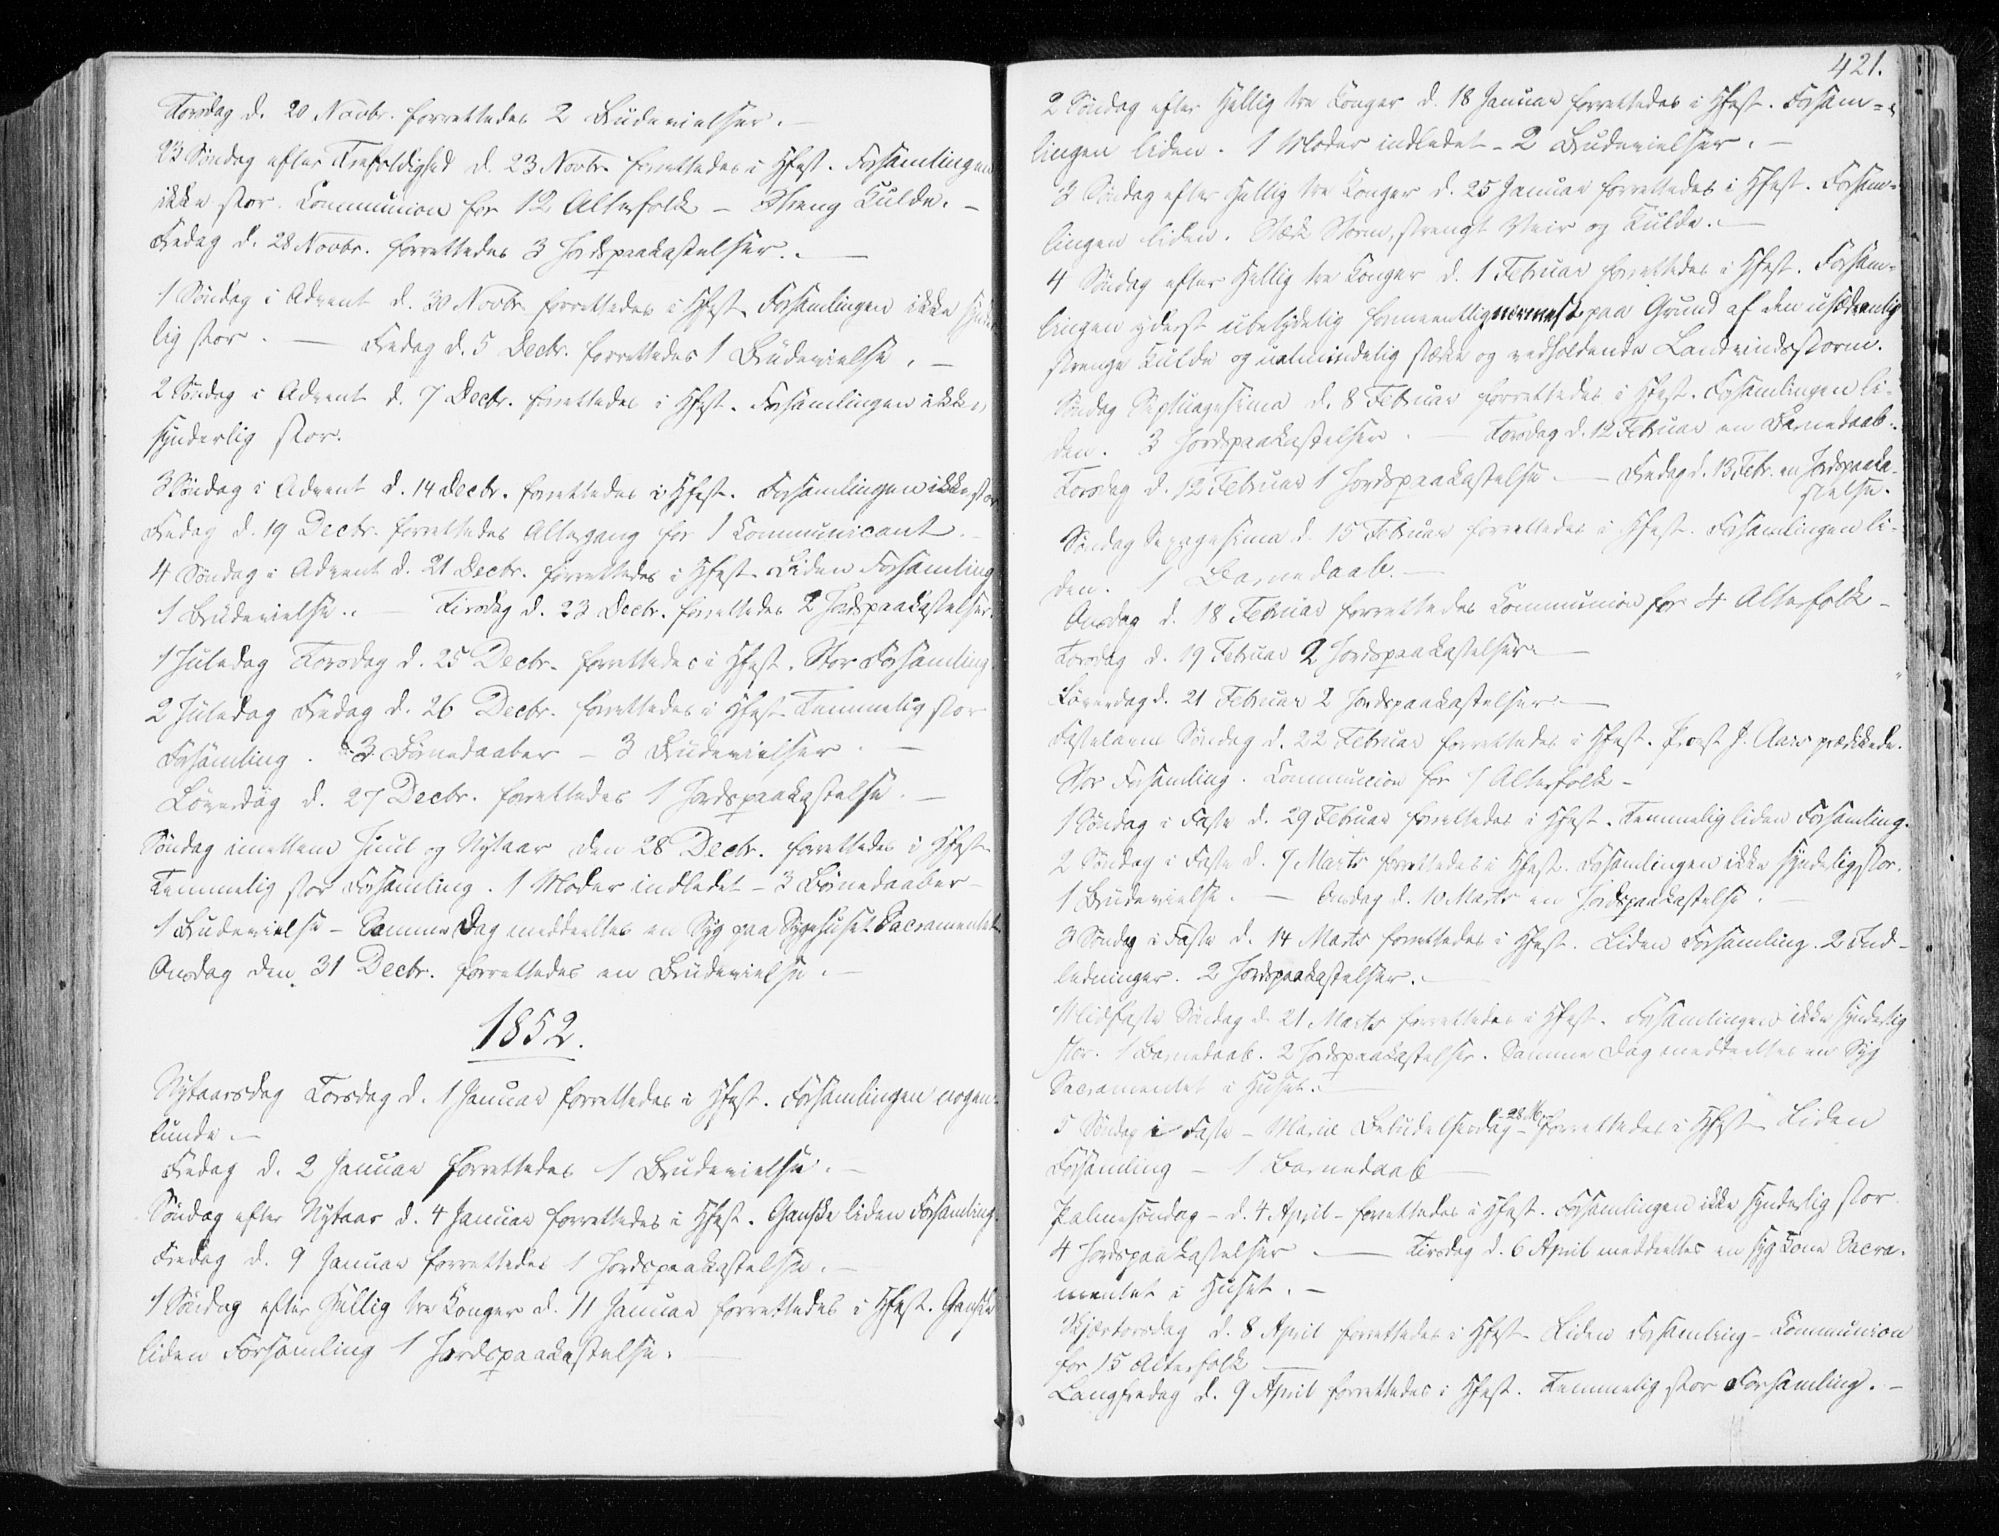 Torsdag d. 20 Novbr. forrettedes 2 Brudevielser. –
23 Søndag efter Trefoldighed d. 23 Novbr. forrettedes i Hfest. Forsamlingen
ikke stor. Communion for 12 Alterfolk – Streng Kulde. –
Fredag d. 28 Novbr. forrettedes 3 Jordspaakastelser. –
1 Søndag i Advent d. 30 Novbr. forrettedes i Hfest. Forsamlingen ikke synder
lig stor. – Fredag d. 5 Decbr. forrettedes 1 Brudevielse. –
2 Søndag i Advent d. 7 Decbr. forrettedes i Hfest. Forsamlingen ikke
synderlig stor.
3 Søndag i Advent d. 14 Decbr. forrettedes i Hfest. Forsamlingen ikke stor
Fredag d. 19 Decbr. forrettedes Altergang for 1 Communicant. –
4 Søndag i Advent d. 21 Decbr. forrettedes i Hfest. Liden Forsamling
1 Brudevielse. – Tirsdag d. 23 Decbr. forrettedes 2 Jordspaakastelser.
1 Juledag Torsdag d. 25 Decbr. forrettedes i Hfest. Stor Forsamling.
2 Juledag Fredag d. 26 Decbr. forrettedes i Hfest. Temmelig stor
Forsamling. 3 Børnedaaber – 3 Brudevielser. –
Løverdag d. 27 Decbr. forrettedes 1 Jordspaakastelse. –
Søndag imellem Juul og Nytaar den 28 Decbr. forrettedes i Hfest.
Temmelig stor Forsamling. 1 Moder indledet – 3 Børnedaaber –
1 Brudevielse – Samme Dag meddeeltes en Syg paa Sygehuset Sacramentet
Onsdag den 31 Decbr. forrettedes en Brudevielse. –
1852.
Nytaarsdag Torsdag d. 1 Januar forrettedes i Hfest. Forsamlingen nogen-
lunde. –
Fredag d. 2 Januar forrettedes 1 Brudevielse. –
Søndag efter Nytaar d. 4 Januar forrettedes i Hfest. Ganske liden Forsamling.
Fredag d. 9 Januar forrettedes 1 Jordspaakastelse. –
1 Søndag efter Hellig tre Konger d. 11 Januar forrettedes i Hfest. Ganske
liden Forsamling 1 Jordspaakastelse. –
421.
2 Søndag efter Hellig tre Konger d. 18 Januar forrettedes i Hfest. Forsam-
lingen liden. 1 Moder indledet – 2 Brudevielser. –
3 Søndag efter Hellig tre Konger d. 25 Januar forrettedes i Hfest. Forsam-
lingen liden. Stærk Storm, strengt Veir og Kulde. –
4 Søndag efter Hellig tre Konger d. 1 Februar forrettedes i Hfest. Forsam-
lingen yderst ubetydelig formeentlig nærmest paa Grund af den usædvanlig
strenge Kulde og ualmindelig stærke og vedholdende Landvindsstorm.
Søndag Septuagesima d. 8 Februar forrettedes i Hfest. Forsamlingen li-
den. 3 Jordspaakastelser. – Torsdag d. 12 Februar en Barnedaab.
Torsdag d. 12 Februar 1 Jordspaakastelse. – Fredag d. 13 Febr. en Jordspaaka-
stelse.
Søndag Sexagesima d. 15 Februar forrettedes i Hfest. Forsamlingen li-
den. 1 Barnedaab. –
Onsdag d. 18 Februar forrettedes Communion for 4 Alterfolk –
Torsdag d. 19 Februar 2 Jordspaakastelser –
Løverdag d. 21 Februar 2 Jordspaakastelser. –
Fastelavns Søndag d. 22 Februar forrettedes i Hfest. Provst J. Aars prædikede.
Stor Forsamling. Communion for 7 Alterfolk –
1 Søndag i Faste d. 29 Februar forrettedes i Hfest. Temmelig liden Forsamling.
2 Søndag i Faste d. 7 Marts forrettedes i Hfest. Forsamlingen ikke synderlig stor.
1 Brudevielse. – Onsdag d. 10 Marts en Jordspaakastelse. –
3 Søndag i Faste d. 14 Marts forrettedes i Hfest. Liden Forsamling. 2 Ind-
ledninger. 2 Jordspaakastelser. –
Midfaste Søndag d. 21 Marts forrettedes i Hfest. Forsamlingen ikke synderlig
stor. 1 Barnedaab. 2 Jordspaakastelser. Samme Dag meddeeltes en Syg
Sacramentet i Huset. –
5 Søndag i Faste – Mariæ Bebudelsesdag – 28 M. forrettedes i Hfest Liden
Forsamling – 1 Barnedaab –
Palmesøndag – d. 4 April – forrettedes i Hfest. Forsamlingen ikke synderlig stor
4 Jordspaakastelser. – Tirsdag d. 6 April meddeeltes en syg Kone Sacra-
mentet i Huset. –
Skjærtorsdag d. 8 April forrettedes i Hfest – Liden Forsamling – Communion
for 15 Alterfolk –
Langfredag d. 9 April forrettedes i Hfest. Temmelig stor Forsamling. –